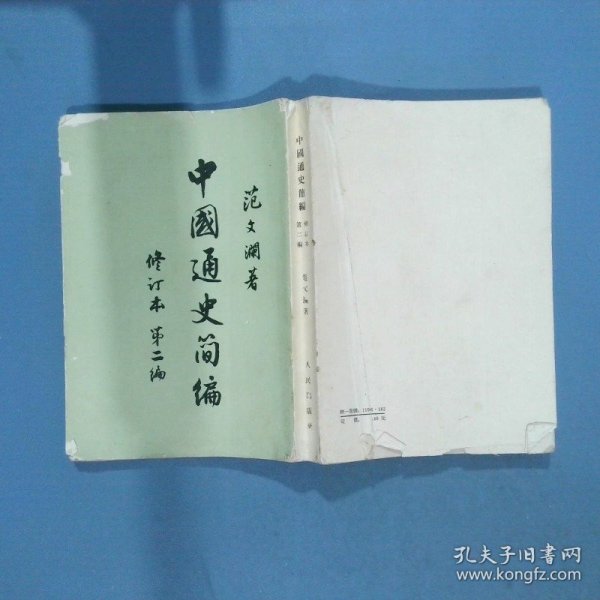 范文澜著
中國通史简编
修订本 第二编
中國通史简编
修订本
第二编
范文澜著
人民出版社
统一书号：11001·182
定价：
孔夫子旧书网
www.kongfz.com